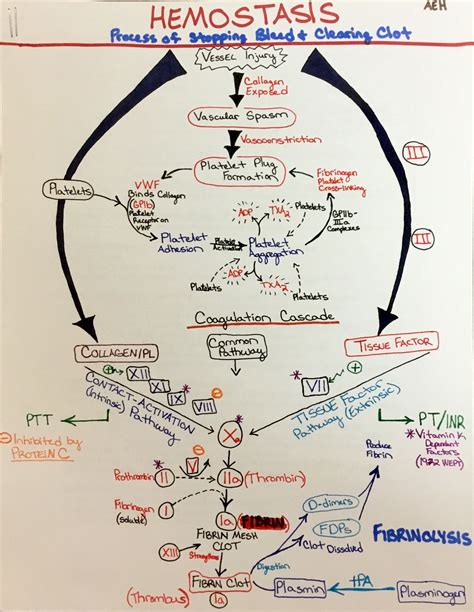 AEH
HEMOSTASIS
Process of Stopping Bleed & Clearing Clot
VESSEL INJURY
Collagen
Exposed
Vascular Spasm
Vasoconstriction
III
Platelet Plug
Formation
Platelets
VWF
Binds Collagen
(GPIb)
Platelet
Receptor on
VWF
Fibrinogen
Platelet
Cross-linking
ADP
TXA2
Platelets
GPIIb-
IIIa
Complexes
III
Platelet
Adhesion
Platelet
Activation
Platelet
Aggregation
ADP
TXA2
Platelets
Platelets
Coagulation Cascade
COLLAGEN/PL
Common
Pathway
TISSUE FACTOR
+
XII
XI
* IX
VIII
-
CONTACT-ACTIVATION
(intrinsic) Pathway
+
* VII
TISSUE Factor
Pathway (Extrinsic)
PTT
PT/INR
- Inhibited by
PROTEIN C
* Xa
* Vitamin K
Dependent
Factors
(1972 WEPT)
Produce
Fibrin
Prothrombin
* II
V
-
IIa
(Thrombin)
Fibrinogen
(soluble)
I
Ia
FIBRIN
FIBRIN MESH
CLOT
D-dimers
FDPs
Clot Dissolved
FIBRINOLYSIS
XIII
Strengthens
Digestion
FIBRIN CLOT
(Thrombus)
Ia
Plasmin
tPA
Plasminogen